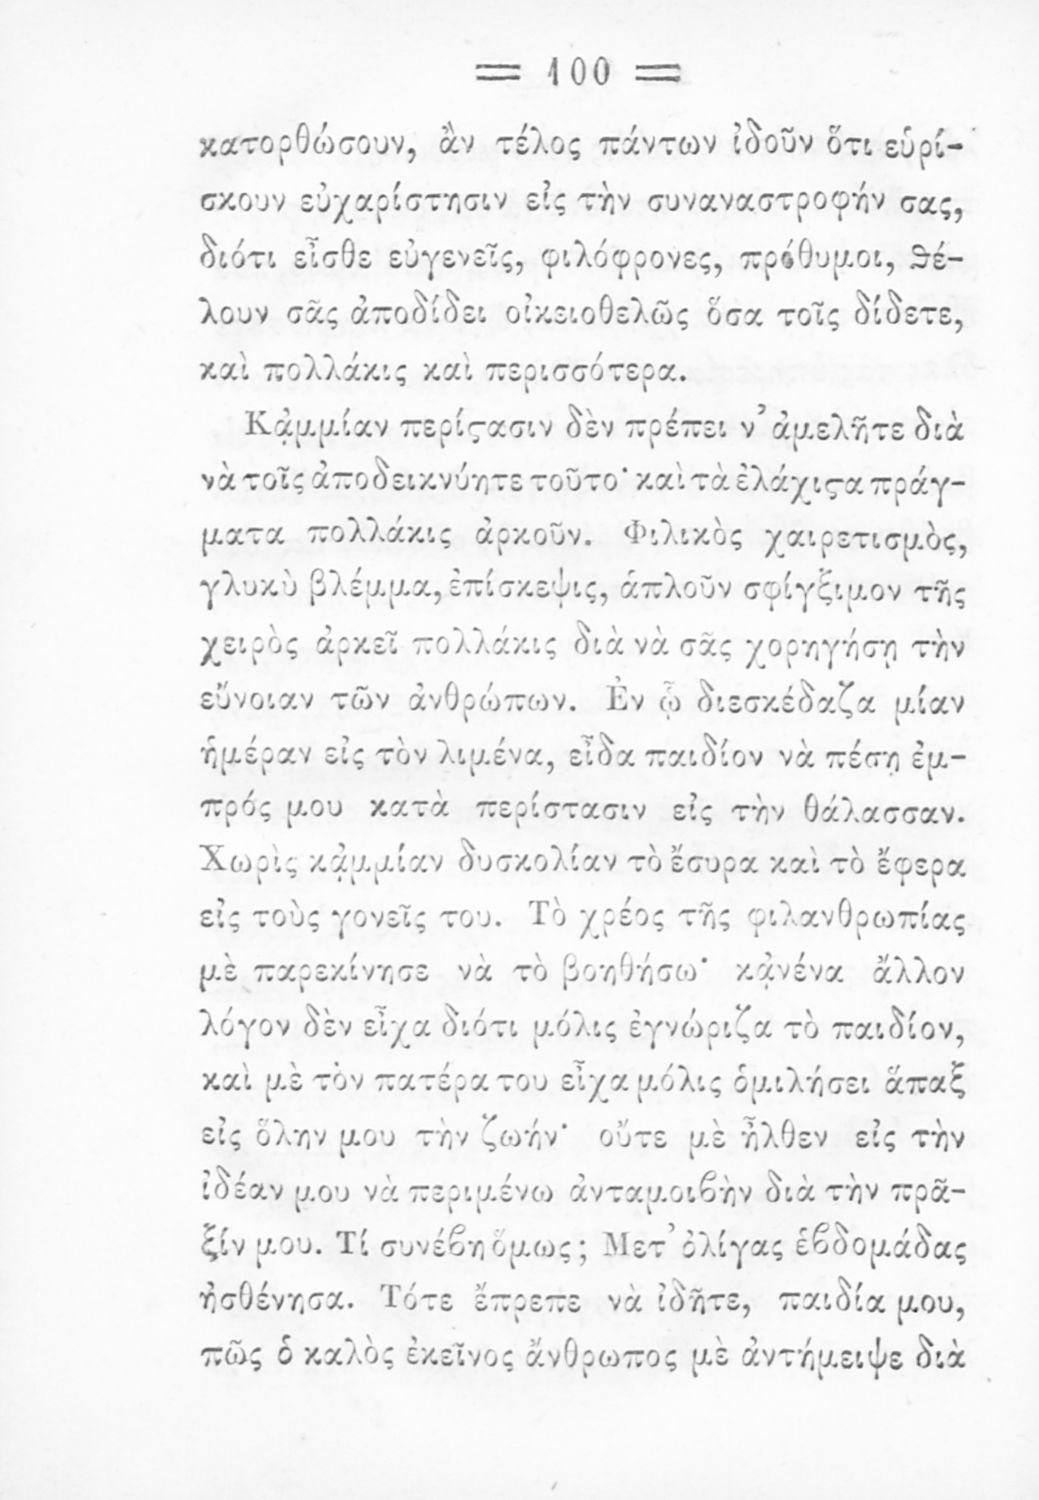 = 100 =
κατορθώσουν, ἂν τέλος πάντων ἰδοῦν ὅτι εὑρί-
σκουν εὐχαρίστησιν εἰς τὴν συναναστροφήν σας,
διότι εἶσθε εὐγενεῖς, φιλόφρονες, πρόθυμοι, ϑέ-
λουν σᾶς ἀποδίδει οἰκειοθελῶς ὅσα τοῖς δίδετε,
καὶ πολλάκις καὶ περισσότερα.
Κᾀμμίαν περίϛασιν δὲν πρέπει ν’ ἀμελῆτε διὰ
νὰ τοῖς ἀποδεικνύητε τοῦτο· καὶ τὰ ἐλάχιϛα πράγ-
ματα πολλάκις ἀρκοῦν. Φιλικὸς χαιρετισμὸς,
γλυκὺ βλέμμα, ἐπίσκεψις, ἁπλοῦν σφίγξιμον τῆς
χειρὸς ἀρκεῖ πολλάκις διὰ νὰ σᾶς χορηγήσῃ τὴν
εὔνοιαν τῶν ἀνθρώπων. Ἐν ᾧ διεσκέδαζα μίαν
ἡμέραν εἰς τὸν λιμένα, εἶδα παιδίον νὰ πέσῃ ἐμ-
πρός μου κατὰ περίστασιν εἰς τὴν θάλασσαν.
Χωρὶς κᾀμμίαν δυσκολίαν τὸ ἔσυρα καὶ τὸ ἔφερα
εἰς τοὺς γονεῖς του. Τὸ χρέος τῆς φιλανθρωπίας
μὲ παρεκίνησε νὰ τὸ βοηθήσω· κᾀνένα ἄλλον
λόγον δὲν εἶχα διότι μόλις ἐγνώριζα τὸ παιδίον,
καὶ μὲ τὸν πατέρα του εἶχα μόλις ὁμιλήσει ἅπαξ
εἰς ὅλην μου τὴν ζωήν· οὔτε μὲ ἦλθεν εἰς τὴν
ἰδέαν μου νὰ περιμένω ἀνταμοιϐὴν διὰ τὴν πρᾶ-
ξίν μου. Τί συνέϐη ὅμως; Μετ’ ὀλίγας ἑϐδομάδας
ἠσθένησα. Τότε ἔπρεπε νὰ ἰδῆτε, παιδία μου,
πῶς ὁ καλὸς ἐκεῖνος ἄνθρωπος μὲ ἀντήμειψε διὰ